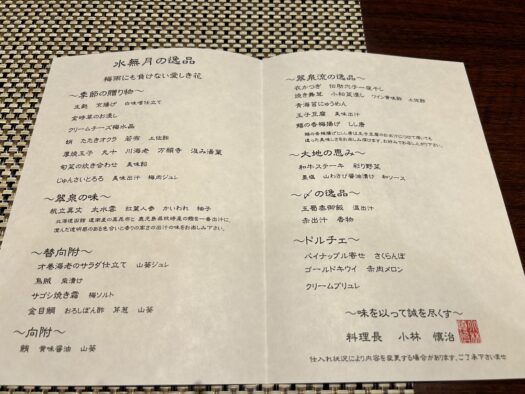 水無月の逸品
梅雨にも負けない愛しき花
～季節の贈り物～
生麩 京揚げ 白味噌仕立て
金時草のお浸し
クリームチーズ梅水晶
蛸 たたきオクラ 若布 土佐酢
厚焼玉子 丸十 川海老 万願寺 汲み湯葉
旬菜の炊き合わせ 美味餡
じゅんさいとろろ 美味出汁 梅肉ジュレ
～翠泉の味～
帆立真丈 大水雲 紅葉人参 かいわれ 柚子
澄んだ透明感のある色合いと香りの高さの出汁の味をお楽しみ下さい。
～替向附～
才巻海老のサラダ仕立て 山葵ジュレ
烏賊 柴漬け
サゴシ焼き霜 梅ソルト
金目鯛 おろしぽん酢 芽葱 山葵
～向附～
鮪 黄味醤油 山葵
～翠泉流の逸品～
衣かつぎ 伝助穴子一夜干し
焼き舞茸 小松菜浸し ワイン黄味酢 土佐酢
青海苔にゅうめん
玉子豆腐 美味出汁
鱧の香梅揚げ しし唐
～大地の恵み～
和牛ステーキ 彩り野菜
黒塩 山わさび醤油漬け 和ソース
～〆の逸品～
玉蜀黍御飯 温出汁
赤出汁 香物
～ドルチェ～
パイナップル寄せ さくらんぼ
ゴールドキウイ 赤肉メロン
クリームブリュレ
～味を以って誠を尽くす～
料理長 小林 慎治
仕入れ状況により内容を変更する場合があります。ご了承下さいませ